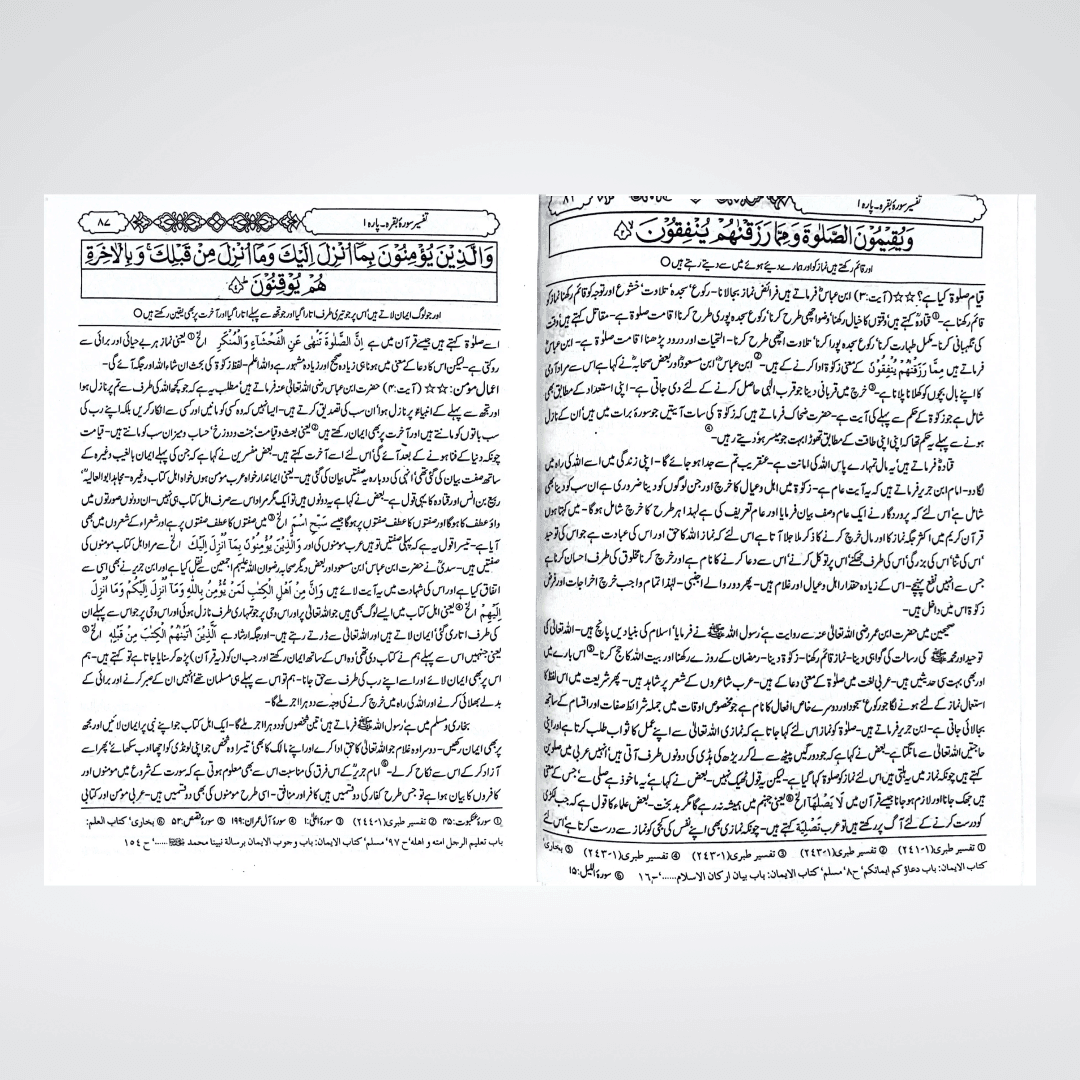 تفسیر سورۂ بقرہ۔ پارہ ۱
۸۶
وَيُقِيْمُوْنَ الصَّلٰوةَ وَمِمَّا رَزَقْنٰهُمْ يُنْفِقُوْنَ ۙ﴿۳﴾
اور قائم رکھتے ہیں نماز کو اور ہمارے دیئے ہوئے میں سے دیتے رہتے ہیں ○
قیام صلوٰۃ کیا ہے؟ ☆☆ (آیت: ۳) ابن عباسؓ فرماتے ہیں فرائض نماز بجا لانا۔ رکوع' سجدہ' تلاوت' خشوع اور توجہ کو قائم رکھنا نماز کو
قائم رکھنا ہے۔① قتادہؒ کہتے ہیں' وقتوں کا خیال رکھنا' وضو اچھی طرح کرنا' رکوع سجدہ پوری طرح کرنا اقامت صلوٰۃ ہے۔ مقاتل کہتے ہیں' وقت
کی نگہبانی کرنا۔ مکمل طہارت کرنا' رکوع' سجدہ پورا کرنا' تلاوت اچھی طرح کرنا۔ التحیات اور درود پڑھنا اقامت صلوٰۃ ہے۔ ابن عباسؓ
فرماتے ہیں مِمَّا رَزَقْنٰهُمْ يُنْفِقُوْنَ کے معنی زکوٰۃ ادا کرنے کے ہیں۔② ابن عباسؓ' ابن مسعودؓ اور بعض صحابہؓ نے کہا ہے اس سے مراد آدمی
کا اپنے بال بچوں کو کھلانا پلانا ہے۔③ خرچ میں قربانی دینا جو قرب الٰہی حاصل کرنے کے لئے دی جاتی ہے۔ اپنی استعداد کے مطابق بھی
شامل ہے جو زکوٰۃ کے حکم سے پہلے کی آیت ہے۔ حضرت ضحاک فرماتے ہیں کہ زکوٰۃ کی سات آیتیں جو سورۂ برات میں ہیں' ان کے نازل
ہونے سے پہلے یہ حکم تھا کہ اپنی اپنی طاقت کے مطابق تھوڑا بہت جو میسر ہو' دیتے رہیں۔④
قتادہؒ فرماتے ہیں' یہ مال تمہارے پاس اللہ کی امانت ہے۔ عنقریب تم سے جدا ہو جائے گا۔ اپنی زندگی میں اسے اللہ کی راہ میں
لگا دو۔ امام ابن جریر فرماتے ہیں کہ یہ آیت عام ہے۔ زکوٰۃ میں اہل و عیال کا خرچ اور جن لوگوں کو دینا ضروری ہے ان سب کو دینا بھی
شامل ہے' اس لئے کہ پروردگار نے ایک عام وصف بیان فرمایا اور عام تعریف کی ہے لہٰذا ہر طرح کا خرچ شامل ہوگا۔ میں کہتا ہوں
قرآن کریم میں اکثر جگہ نماز کا اور مال خرچ کرنے کا ذکر ملا جلا آتا ہے اس لئے کہ نماز اللہ کا حق اور اس کی عبادت ہے جو اس کی توحید
'اس کی ثنا' اس کی بزرگی' اس کی طرف جھکنے' اس پر توکل کرنے' اس سے دعا کرنے کا نام ہے اور خرچ کرنا مخلوق کی طرف احسان کرنا ہے
جس سے انہیں نفع پہنچے۔ اس کے زیادہ حقدار اہل و عیال اور غلام ہیں۔ پھر دور والے اجنبی۔ لہٰذا تمام واجب خرچ اخراجات اور فرض
زکوٰۃ اس میں داخل ہیں۔
صحیحین میں حضرت ابن عمر رضی اللہ تعالیٰ عنہ سے روایت ہے' رسول اللہ ﷺ نے فرمایا' اسلام کی بنیادیں پانچ ہیں۔ اللہ تعالیٰ کی
توحید اور محمد ﷺ کی رسالت کی گواہی دینا۔ نماز قائم رکھنا۔ زکوٰۃ دینا۔ رمضان کے روزے رکھنا اور بیت اللہ کا حج کرنا۔⑤ اس بارے میں
اور بھی بہت سی حدیثیں ہیں۔ عربی لغت میں صلوٰۃ کے معنی دعا کے ہیں۔ عرب شاعروں کے شعر اس پر شاہد ہیں۔ پھر شریعت میں اس لفظ کا
استعمال نماز کے لئے ہونے لگا جو رکوع' سجود اور دوسرے خاص افعال کا نام ہے جو مخصوص اوقات میں جملہ شرائط صفات اور اقسام کے ساتھ
بجا لائی جاتی ہے۔ ابن جریر فرماتے ہیں۔ صلوٰۃ کو نماز اس لئے کہا جاتا ہے کہ نمازی اللہ تعالیٰ سے اپنے عمل کا ثواب طلب کرتا ہے اور اپنی
حاجتیں اللہ تعالیٰ سے مانگتا ہے۔ بعض نے کہا کہ جو دو رگیں پیٹھ سے لے کر ریڑھ کی ہڈی کی دونوں طرف آتی ہیں' انہیں عربی میں صلوین
کہتے ہیں چونکہ نماز میں یہ ہلتی ہیں اس لئے نماز کو صلوٰۃ کہا گیا ہے۔ لیکن یہ قول ٹھیک نہیں۔ بعض نے کہا ہے' یہ ماخوذ ہے صلی سے' جس کے معنی
ہیں چپک جانا اور لازم ہو جانا جیسے قرآن میں لَا يَصْلٰهَا الخ⑥ یعنی جہنم میں ہمیشہ نہ رہے گا مگر بد بخت۔ بعض علماء کا قول ہے کہ جب لکڑی
کو درست کرنے کے لئے آگ پر رکھتے ہیں تو عرب تَصْلِيَة کہتے ہیں۔ چونکہ نمازی بھی اپنے نفس کی کجی کو نماز سے درست کرتا ہے' اس لئے
① تفسیر طبری (۱-۲۴۱) ② تفسیر طبری (۱-۲۴۳) ③ تفسیر طبری (۱-۲۴۳) ④ تفسیر طبری (۱-۲۴۳) ⑤ بخاری'
کتاب الایمان: باب دعاؤکم ایمانکم' ح ۸' مسلم' کتاب الایمان: باب بیان ارکان الاسلام......' ح ۱۶ ⑥ سورۂ اللیل: ۱۵
تفسیر سورۂ بقرہ۔ پارہ ۱
۸۷
وَالَّذِيْنَ يُؤْمِنُوْنَ بِمَآ اُنْزِلَ اِلَيْكَ وَمَآ اُنْزِلَ مِنْ قَبْلِكَ ۚ وَبِالْاٰخِرَةِ
هُمْ يُوْقِنُوْنَ ؕ﴿۴﴾
اور جو لوگ ایمان لاتے ہیں' اس پر جو تیری طرف اتارا گیا اور جو تجھ سے پہلے اتارا گیا اور آخرت پر بھی یقین رکھتے ہیں ○
اسے صلوٰۃ کہتے ہیں جیسے قرآن میں ہے اِنَّ الصَّلٰوةَ تَنْهٰى عَنِ الْفَحْشَآءِ وَالْمُنْكَرِ الخ① یعنی نماز ہر بے حیائی اور برائی سے
روکتی ہے۔ لیکن اس کا دعا کے معنی میں ہونا ہی زیادہ صحیح اور زیادہ مشہور ہے واللہ اعلم۔ لفظ زکوٰۃ کی بحث ان شاء اللہ اور جگہ آئے گی۔
اعمال مومن: ☆☆ (آیت: ۴) حضرت ابن عباس رضی اللہ تعالیٰ عنہ فرماتے ہیں' مطلب یہ ہے کہ جو کچھ اللہ کی طرف سے تم پر نازل ہوا
اور تجھ سے پہلے کے انبیاءؑ پر نازل ہوا' ان سب کی تصدیق کرتے ہیں۔ ایسا نہیں کہ وہ کسی کو مانیں اور کسی سے انکار کریں بلکہ اپنے رب کی
سب باتوں کو مانتے ہیں اور آخرت پر بھی ایمان رکھتے ہیں② یعنی بعث و قیامت' جنت و دوزخ' حساب و میزان سب کو مانتے ہیں۔ قیامت
چونکہ دنیا کے فنا ہونے کے بعد آئے گی' اس لئے اسے آخرت کہتے ہیں۔ بعض مفسرین نے کہا ہے کہ جن کی پہلے ایمان بالغیب وغیرہ کے
ساتھ صفت بیان کی گئی تھی' انہی کی دوبارہ یہ صفتیں بیان کی گئی ہیں۔ یعنی ایماندار خواہ عرب مومن ہوں خواہ اہل کتاب وغیرہ۔ مجاہد ابو العالیہؒ'
ربیع بن انس اور قتادہ کا یہی قول ہے۔ بعض نے کہا ہے یہ دونوں ہیں تو ایک مگر مراد اس سے صرف اہل کتاب ہی نہیں۔ ان دونوں صورتوں میں
واؤ عطف کا ہوگا اور صفتوں کا عطف صفتوں پر ہوگا جیسے سَبِّحِ اسْمَ الخ③ میں صفتوں کا عطف صفتوں پر ہے اور شعراء کے شعروں میں بھی
آیا ہے۔ تیسرا قول یہ ہے کہ پہلی صفتیں تو ہیں عرب مومنوں کی اور وَالَّذِيْنَ يُؤْمِنُوْنَ بِمَآ اُنْزِلَ اِلَيْكَ الخ سے مراد اہل کتاب مومنوں کی
صفتیں ہیں۔ سدیؒ نے حضرت ابن عباس' ابن مسعود اور بعض دیگر صحابہ رضوان اللہ علیہم اجمعین سے نقل کیا ہے اور ابن جریر نے بھی اسی سے
اتفاق کیا ہے اور اس کی شہادت میں یہ آیت لائے ہیں وَاِنَّ مِنْ اَهْلِ الْكِتٰبِ لَمَنْ يُّؤْمِنُ بِاللّٰهِ وَمَآ اُنْزِلَ اِلَيْكُمْ وَمَآ اُنْزِلَ
اِلَيْهِمْ الخ④ یعنی اہل کتاب میں ایسے لوگ بھی ہیں جو اللہ تعالیٰ پر اور اس وحی پر جو تمہاری طرف نازل ہوئی اور اس وحی پر جو اس سے پہلے ان
کی طرف اتاری گئی' ایمان لاتے ہیں اور اللہ تعالیٰ سے ڈرتے رہتے ہیں۔ اور جگہ ارشاد ہے اَلَّذِيْنَ اٰتَيْنٰهُمُ الْكِتٰبَ مِنْ قَبْلِهٖ الخ⑤
یعنی جنہیں اس سے پہلے ہم نے کتاب دی تھی' وہ اس کے ساتھ ایمان رکھتے اور جب ان کو (یہ قرآن) پڑھ کر سنایا جاتا ہے تو کہتے ہیں۔ ہم
اس پر بھی ایمان لائے اور اسے اپنے رب کی طرف سے حق جانا۔ ہم تو اس سے پہلے ہی مسلمان تھے' انہیں ان کے صبر کرنے اور برائی کے
بدلے بھلائی کرنے اور اللہ کی راہ میں خرچ کرنے کی وجہ سے دوہرا اجر ملے گا۔
بخاری و مسلم میں ہے' رسول اللہ ﷺ فرماتے ہیں' تین شخصوں کو دوہرا اجر ملے گا۔ ایک اہل کتاب جو اپنے نبی پر ایمان لائیں اور مجھ
پر بھی ایمان رکھیں۔ دوسرا وہ غلام جو اللہ تعالیٰ کا حق ادا کرے اور اپنے مالک کا بھی' تیسرا وہ شخص جو اپنی لونڈی کو اچھا ادب سکھائے' پھر اسے
آزاد کر کے اس سے نکاح کر لے۔⑥ امام جریرؒ کے اس فرق کی مناسبت اس سے بھی معلوم ہوتی ہے کہ سورت کے شروع میں مومنوں اور
کافروں کا بیان ہوا ہے تو جس طرح کفار کی دو قسمیں ہیں کافر اور منافق۔ اسی طرح مومنوں کی بھی دو قسمیں ہیں۔ عربی مومن اور کتابی
① سورۂ عنکبوت: ۴۵ ② تفسیر طبری (۱-۲۴۴) ③ سورۂ اعلیٰ: ۱ ④ سورۂ آل عمران: ۱۹۹ ⑤ سورۂ قصص: ۵۲ ⑥ بخاری' کتاب العلم:
باب تعلیم الرجل امتہ و اھلہ' ح ۹۷' مسلم' کتاب الایمان: باب وجوب الایمان برسالۃ نبینا محمد ﷺ ......' ح ۱۵۴